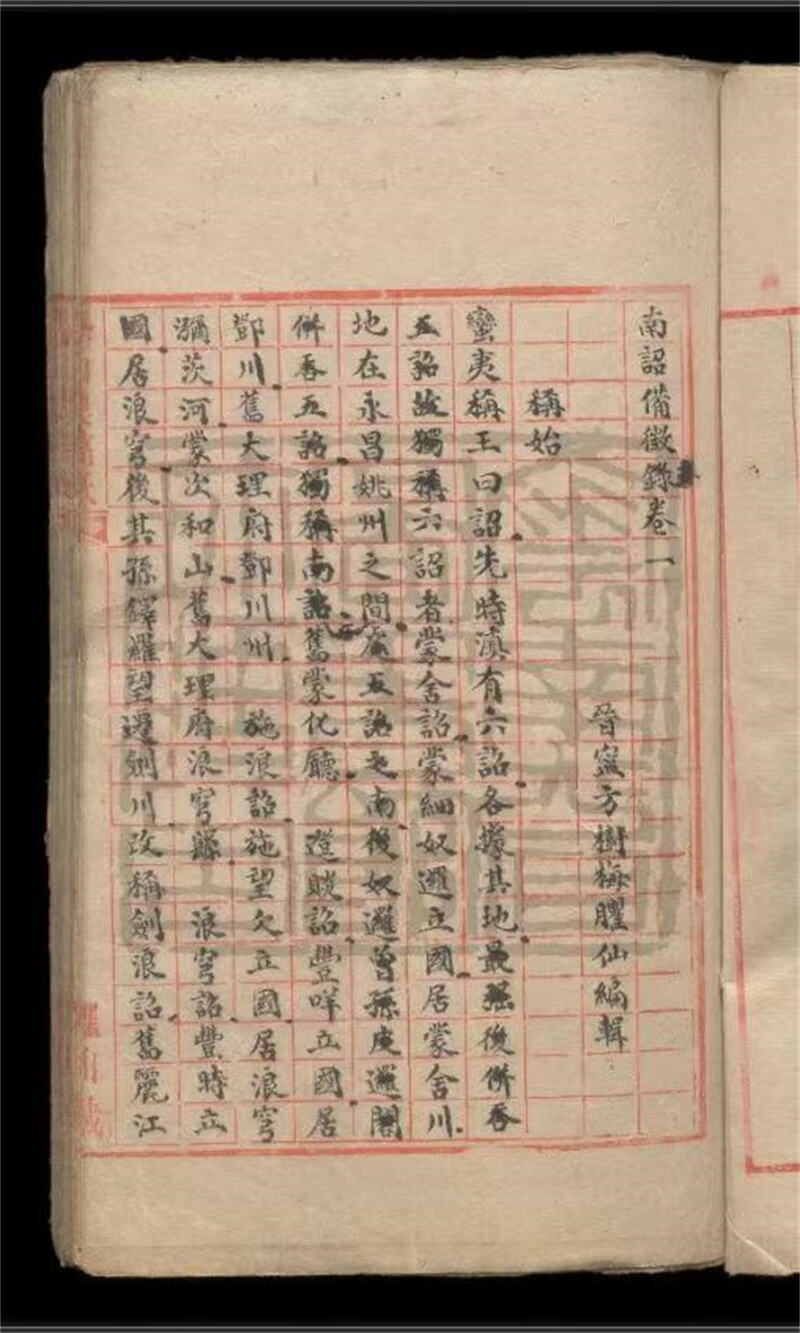 南詔備徵錄卷一
晉寧方樹梅臞仙編輯
稱始
蠻夷稱王曰詔先時滇有六詔各據其地最强後併吞
五詔故獨稱六詔者蒙舍詔蒙細奴邏立國居蒙舍川
地在永昌姚州之間居五詔之南後奴邏曾孫皮邏閣
併吞五詔獨稱南詔舊蒙化廳 邆賧詔豐咩立國居
鄧川舊大理府鄧川州 施浪詔施望欠立國居浪穹
瀰茨河蒙次和山舊大理府浪穹縣 浪穹詔豐時立
國居浪穹後其孫鐸羅望遷劍川改稱劍浪詔舊麗江